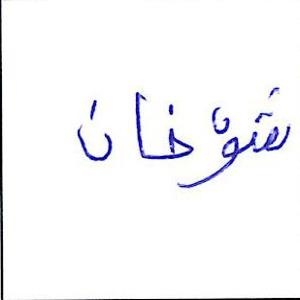 شۆخان